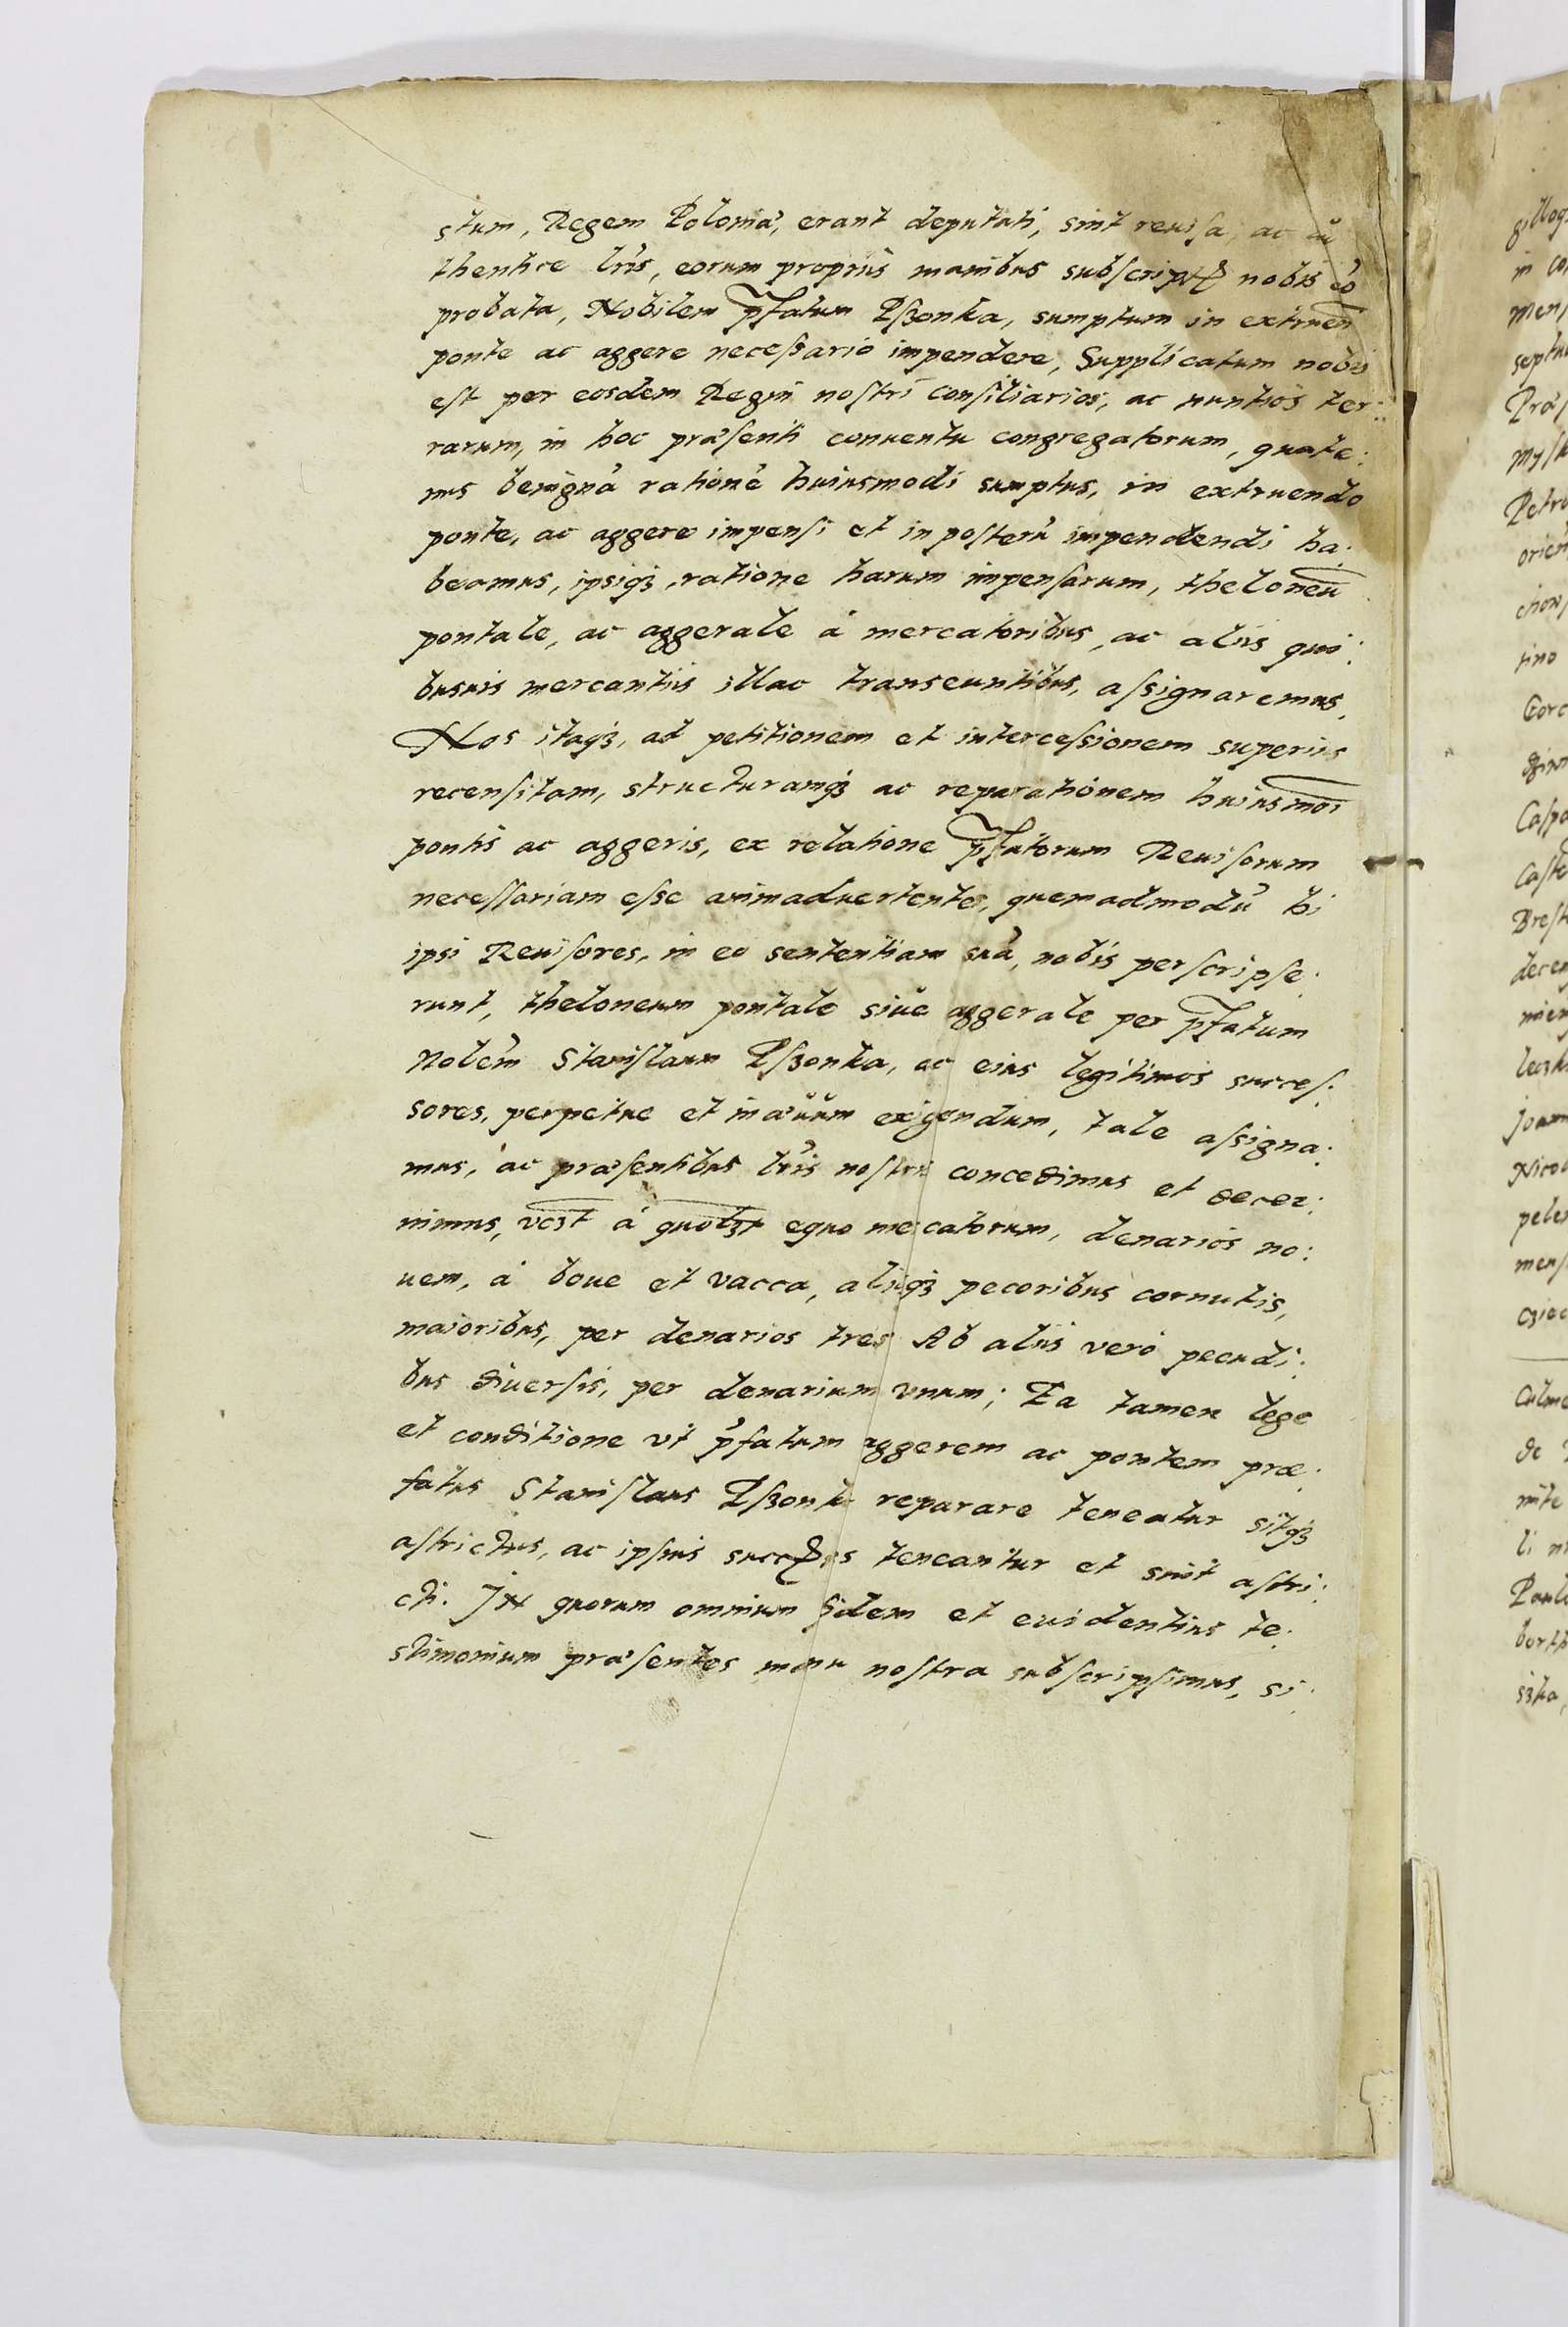 stum, Regem Poloniæ, erant deputati, sint reuisa, ac au
thentice lrīs, eorum proprijs manibus subscriptis nobis cō
probata, Nobilem pfatum Pszonka, sumptum in extruen
ponte ac aggere necessario impendere, Supplicatum nobis
est per eosdem Regni nostri consiliarios, ac nuntios ter:
rarum, in hoc præsenti conuentu congregatorum, quate:
nus benignā rationē huiusmodi sumptus, in extruendo
ponte, ac aggere impensi et in posterū impendendi ha:
beamus, ipsiq3, ratione harum impensarum, theloneū
pontale, ac aggerale à mercatoribus, ac alijs qui:
busuis mercantijs illac transeuntibus, assignaremus,
Nos itaq3, ad petitionem et intercessionem superius
recensitam, structuramq3 ac reparationem huiusmōi
pontis ac aggeris, ex relatione pfatorum Reuisorum
necessariam esse animaduertentes, quemadmodū hi
ipsi Reuisores, in eo sententiam suā, nobis perscripse:
runt, theloneum pontale siue aggerale per pfatum
Nobłem Stanislaum Pszonka, ac eius legitimos succes:
sores, perpetue et in æuum exigendum, tale assigna:
mus, ac præsentibus lrīs nostris concedimus et decer:
nimus, vcz3t à quolz3t equo mercatorum, denarios no:
uem, à boue et vacca, alijq3 pecoribus cornutis,
maioribus, per denarios tres Ab alijs vero pecudi:
bus diuersis, per denarium vnum; Ea tamen lege
et conditione vt pfatum aggerem ac pontem præ:
fatus Stanislaus Pszonka reparare teneatur sitq3
astrictus, ac ipsius successores teneantur et sint astri:
cti. In quorum omnium fidem et euidentius te:
stimonium præsentes manu nostra subscripsimus, si: